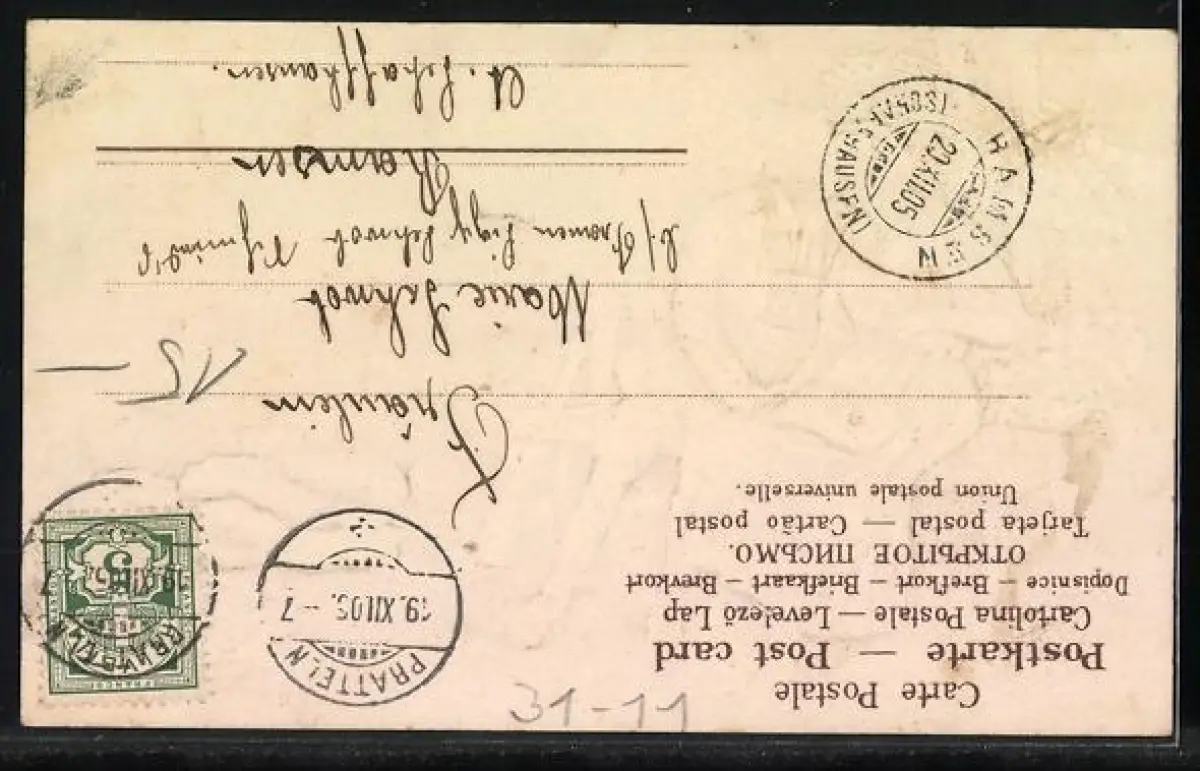 Carte Postale
Postkarte — Post card
Cartolina Postale — Levelező Lap
Dopisnice – Brefkort – Briefkaart – Brevkort
ОТКРЫТОЕ ПИСЬМО.
Tarjeta postal — Cartão postal
Union postale universelle.
31-11
PRATTELN
19.XII.05. – 7
5
FRANCO
PRATTELN
Fräulein
15 —
Marie Schwob
Schwob
Ramsen
Ct. Schaffhausen.
RAMSEN
20.XII.05
(SCHAFFHAUSEN)